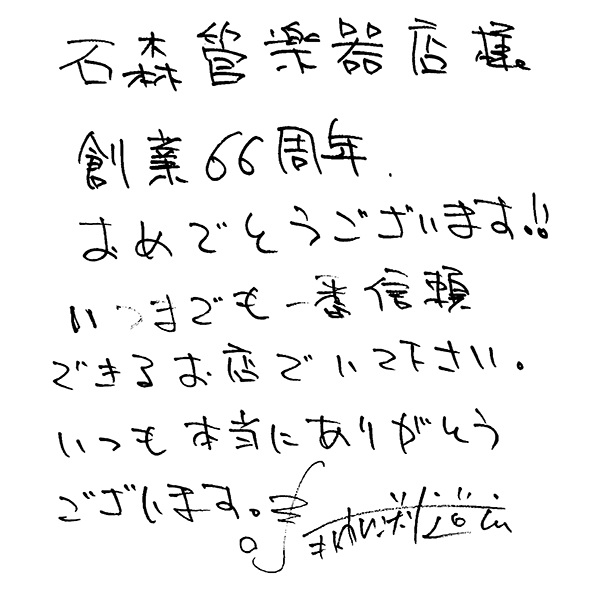 石森管楽器店様
創業66周年.
おめでとうございます!!
いつまでも一番信頼
できるお店でいて下さい。
いつも本当にありがとう
ございます。